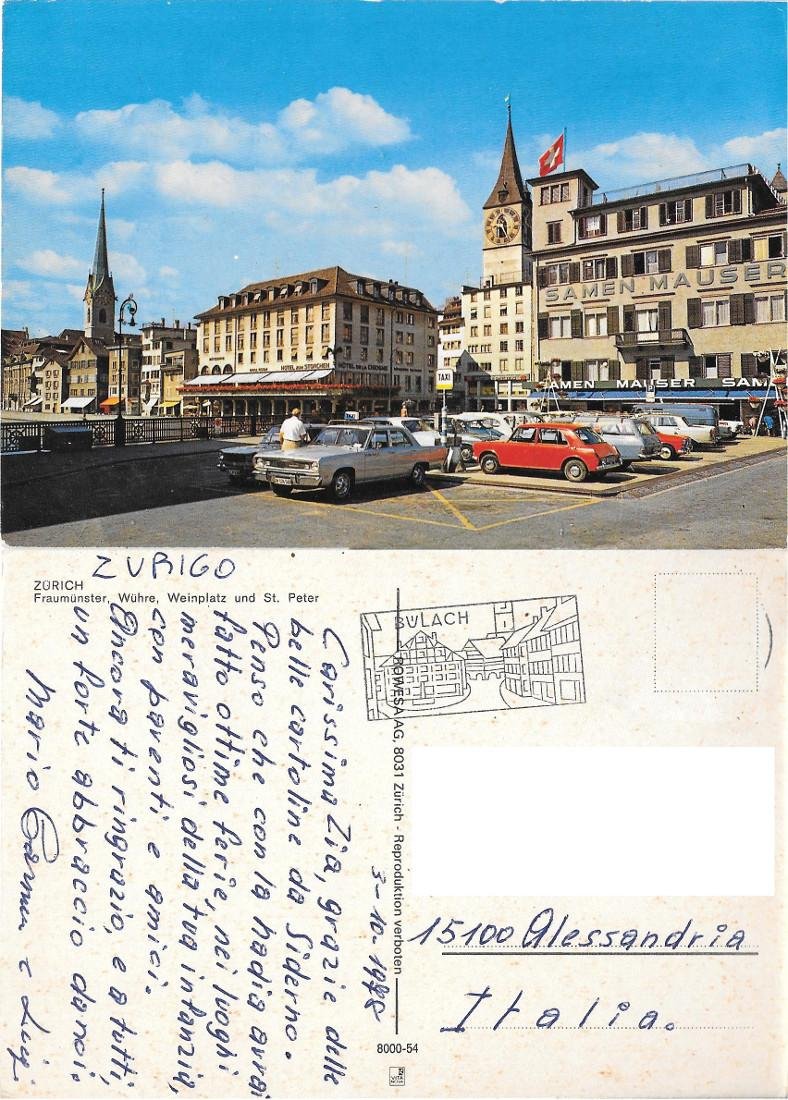 HOTEL ZUM STORCHEN
HOTEL DE LA CIGOGNE
TAXI
SAMEN MAUSER
SAMEN MAUSER SAM
ZURIGO
ZÜRICH
Fraumünster, Wühre, Weinplatz und St. Peter
BÜLACH
Carissima Zia, grazie delle
belle cartoline da Siderno.
Penso che con la Nadia avrai
fatto ottime ferie, nei luoghi
meravigliosi della tua infanzia,
con parenti e amici.
Ancora ti ringrazio, e a tutti,
un forte abbraccio da noi.
Mario Carmen e Luigi
3-10-1975
ROWESA AG, 8031 Zürich - Reproduktion verboten
15100 Alessandria
Italia.
8000-54